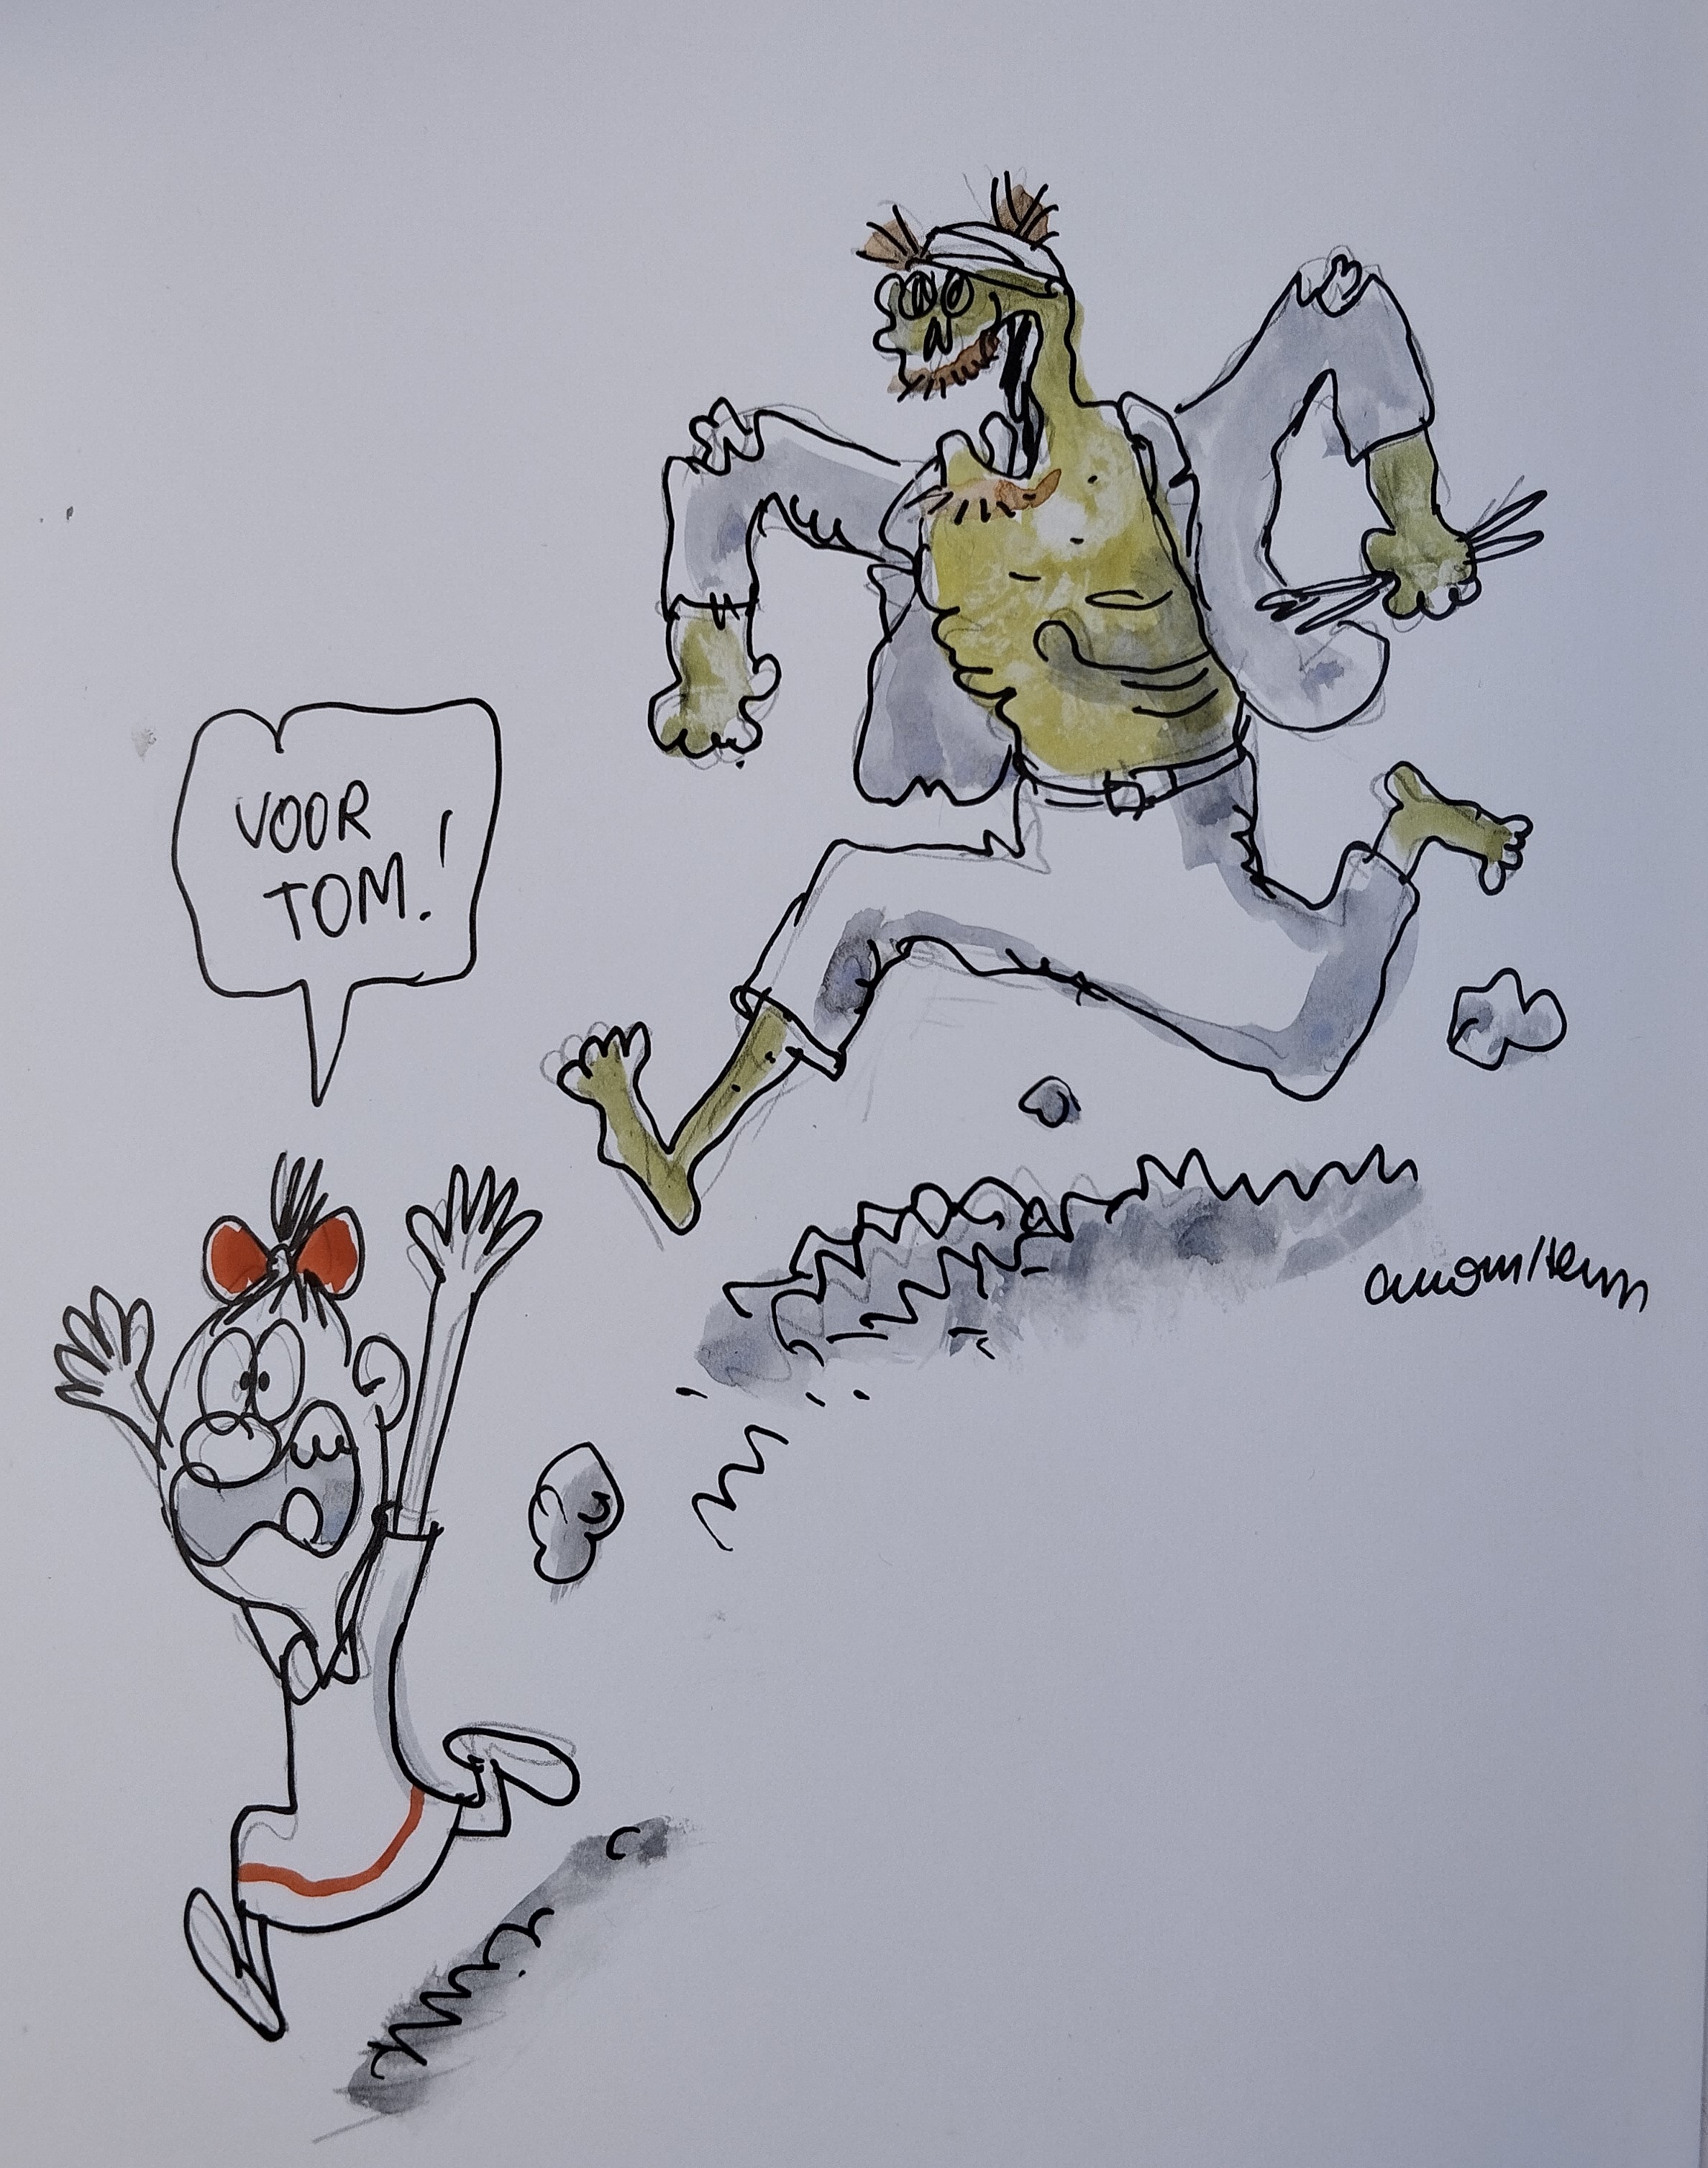 VOOR
TOM!